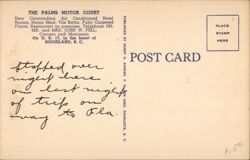 THE PALMS MOTOR COURT
New Outstanding Air Conditioned Hotel
Rooms, Steam Heat, Tile Baths, Fully Carpeted
Floors, Restaurant on premises. Telephone 105.
MR. AND MRS. JOHN W. PELL,
Owners and Managers
On U. S. 17, in the heart of
RIDGELAND, S. C.
Stopped over
night here
on last night
of trip on
way to Fla.
POST CARD
PLACE
STAMP
HERE
1.50